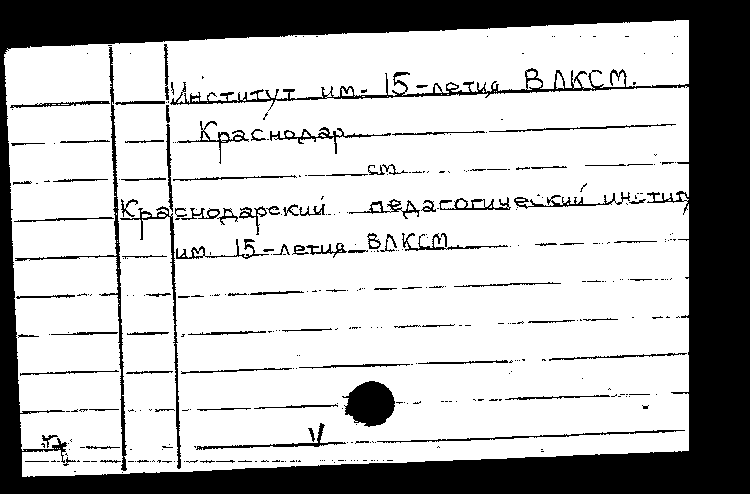 Институт им. 15-летия ВЛКСМ.
Краснодар
см.
Краснодарский педагогический институ
им. 15-летия ВЛКСМ.